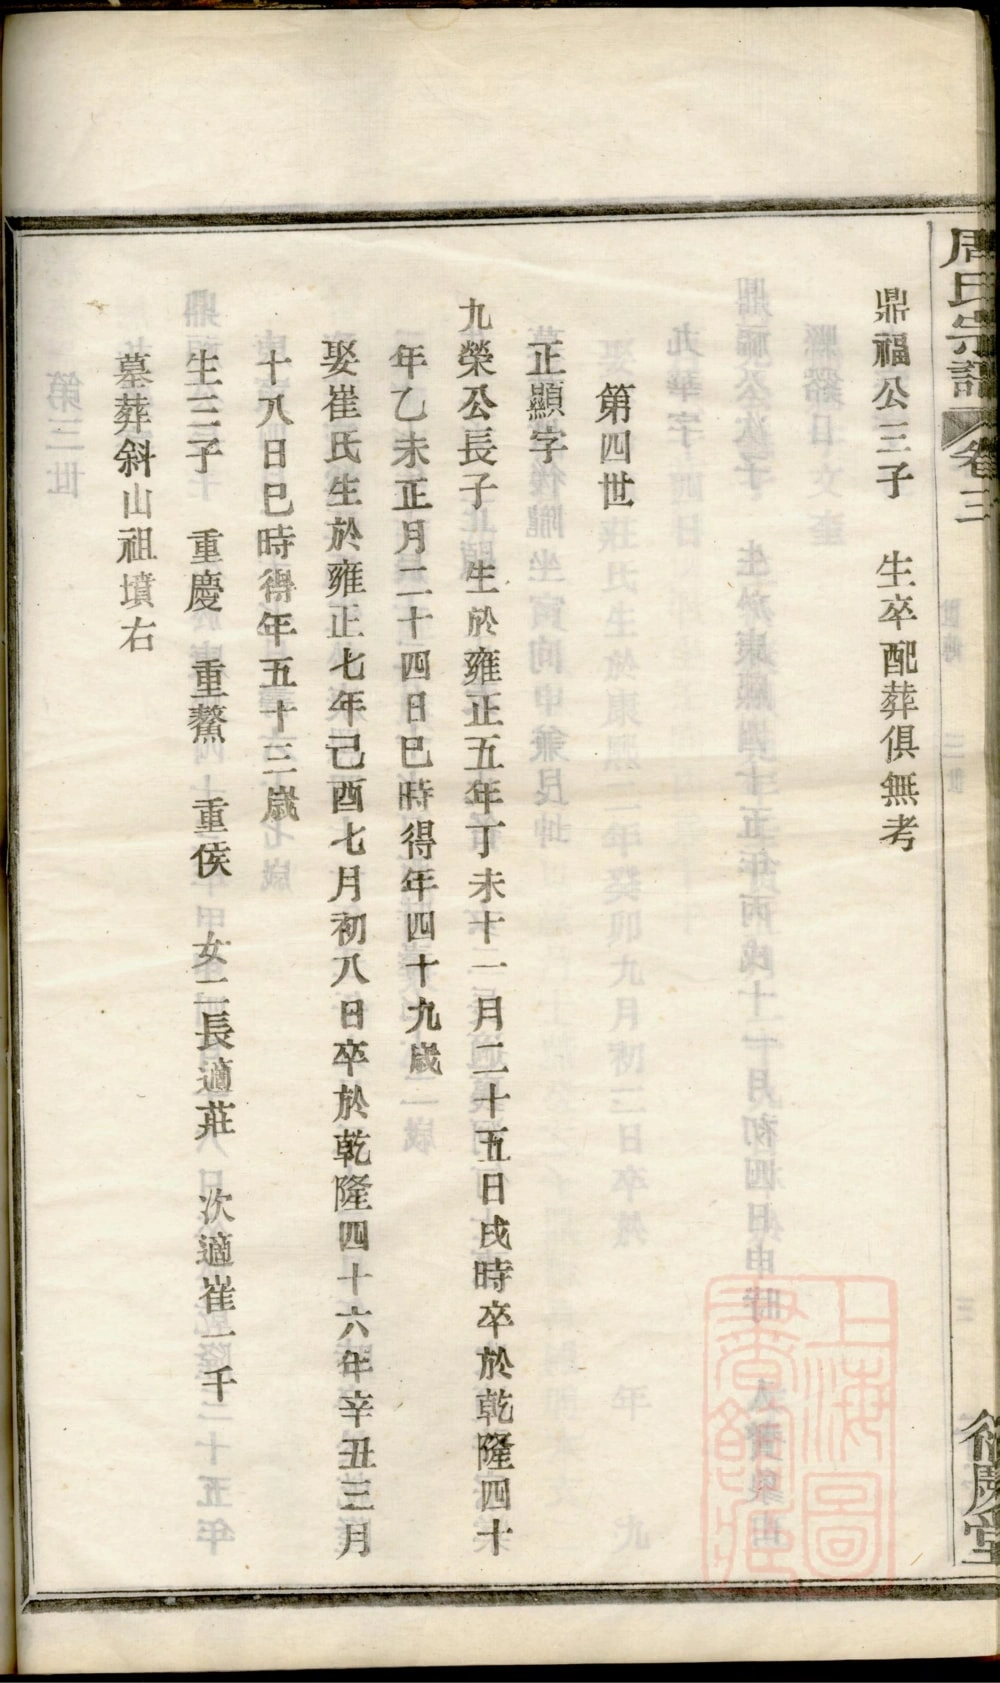 周氏宗譜 卷三
鼎福公三子 生卒配葬俱無考
第四世
正顯字
九榮公長子 生於雍正五年丁未十一月二十五日戌時卒於乾隆四十
年乙未正月二十四日巳時得年四十九歲
娶崔氏生於雍正七年己酉七月初八日卒於乾隆四十六年辛丑三月
十八日巳時得年五十三歲
生三子 重慶 重鰲 重侯 女二長適莊 次適崔一千
墓葬斜山祖墳右
慶堂
上海圖書館藏